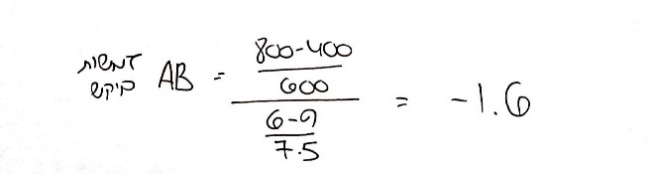 גמישות
ביקוש AB = 800-400 = -1.6
600
6-9
7.5